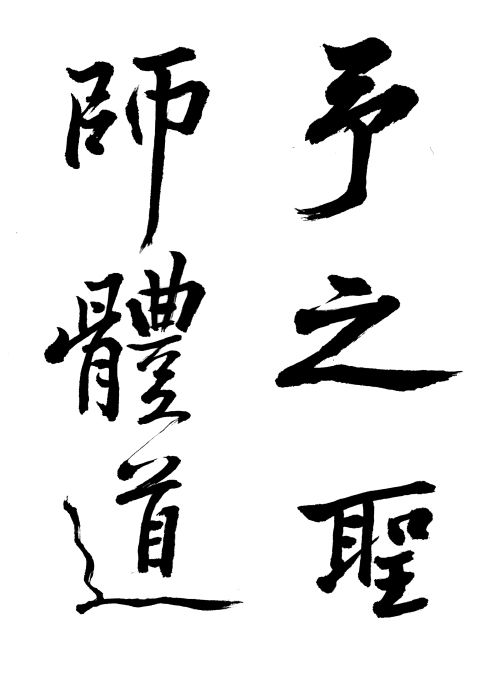 予之聖
師體道